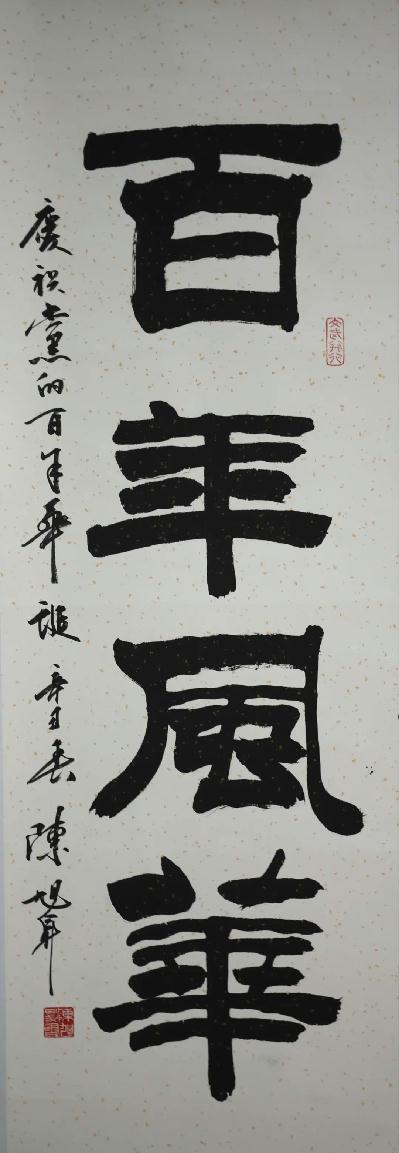 百年風華
慶祝黨的百年華誕 辛丑春 陳旭昇